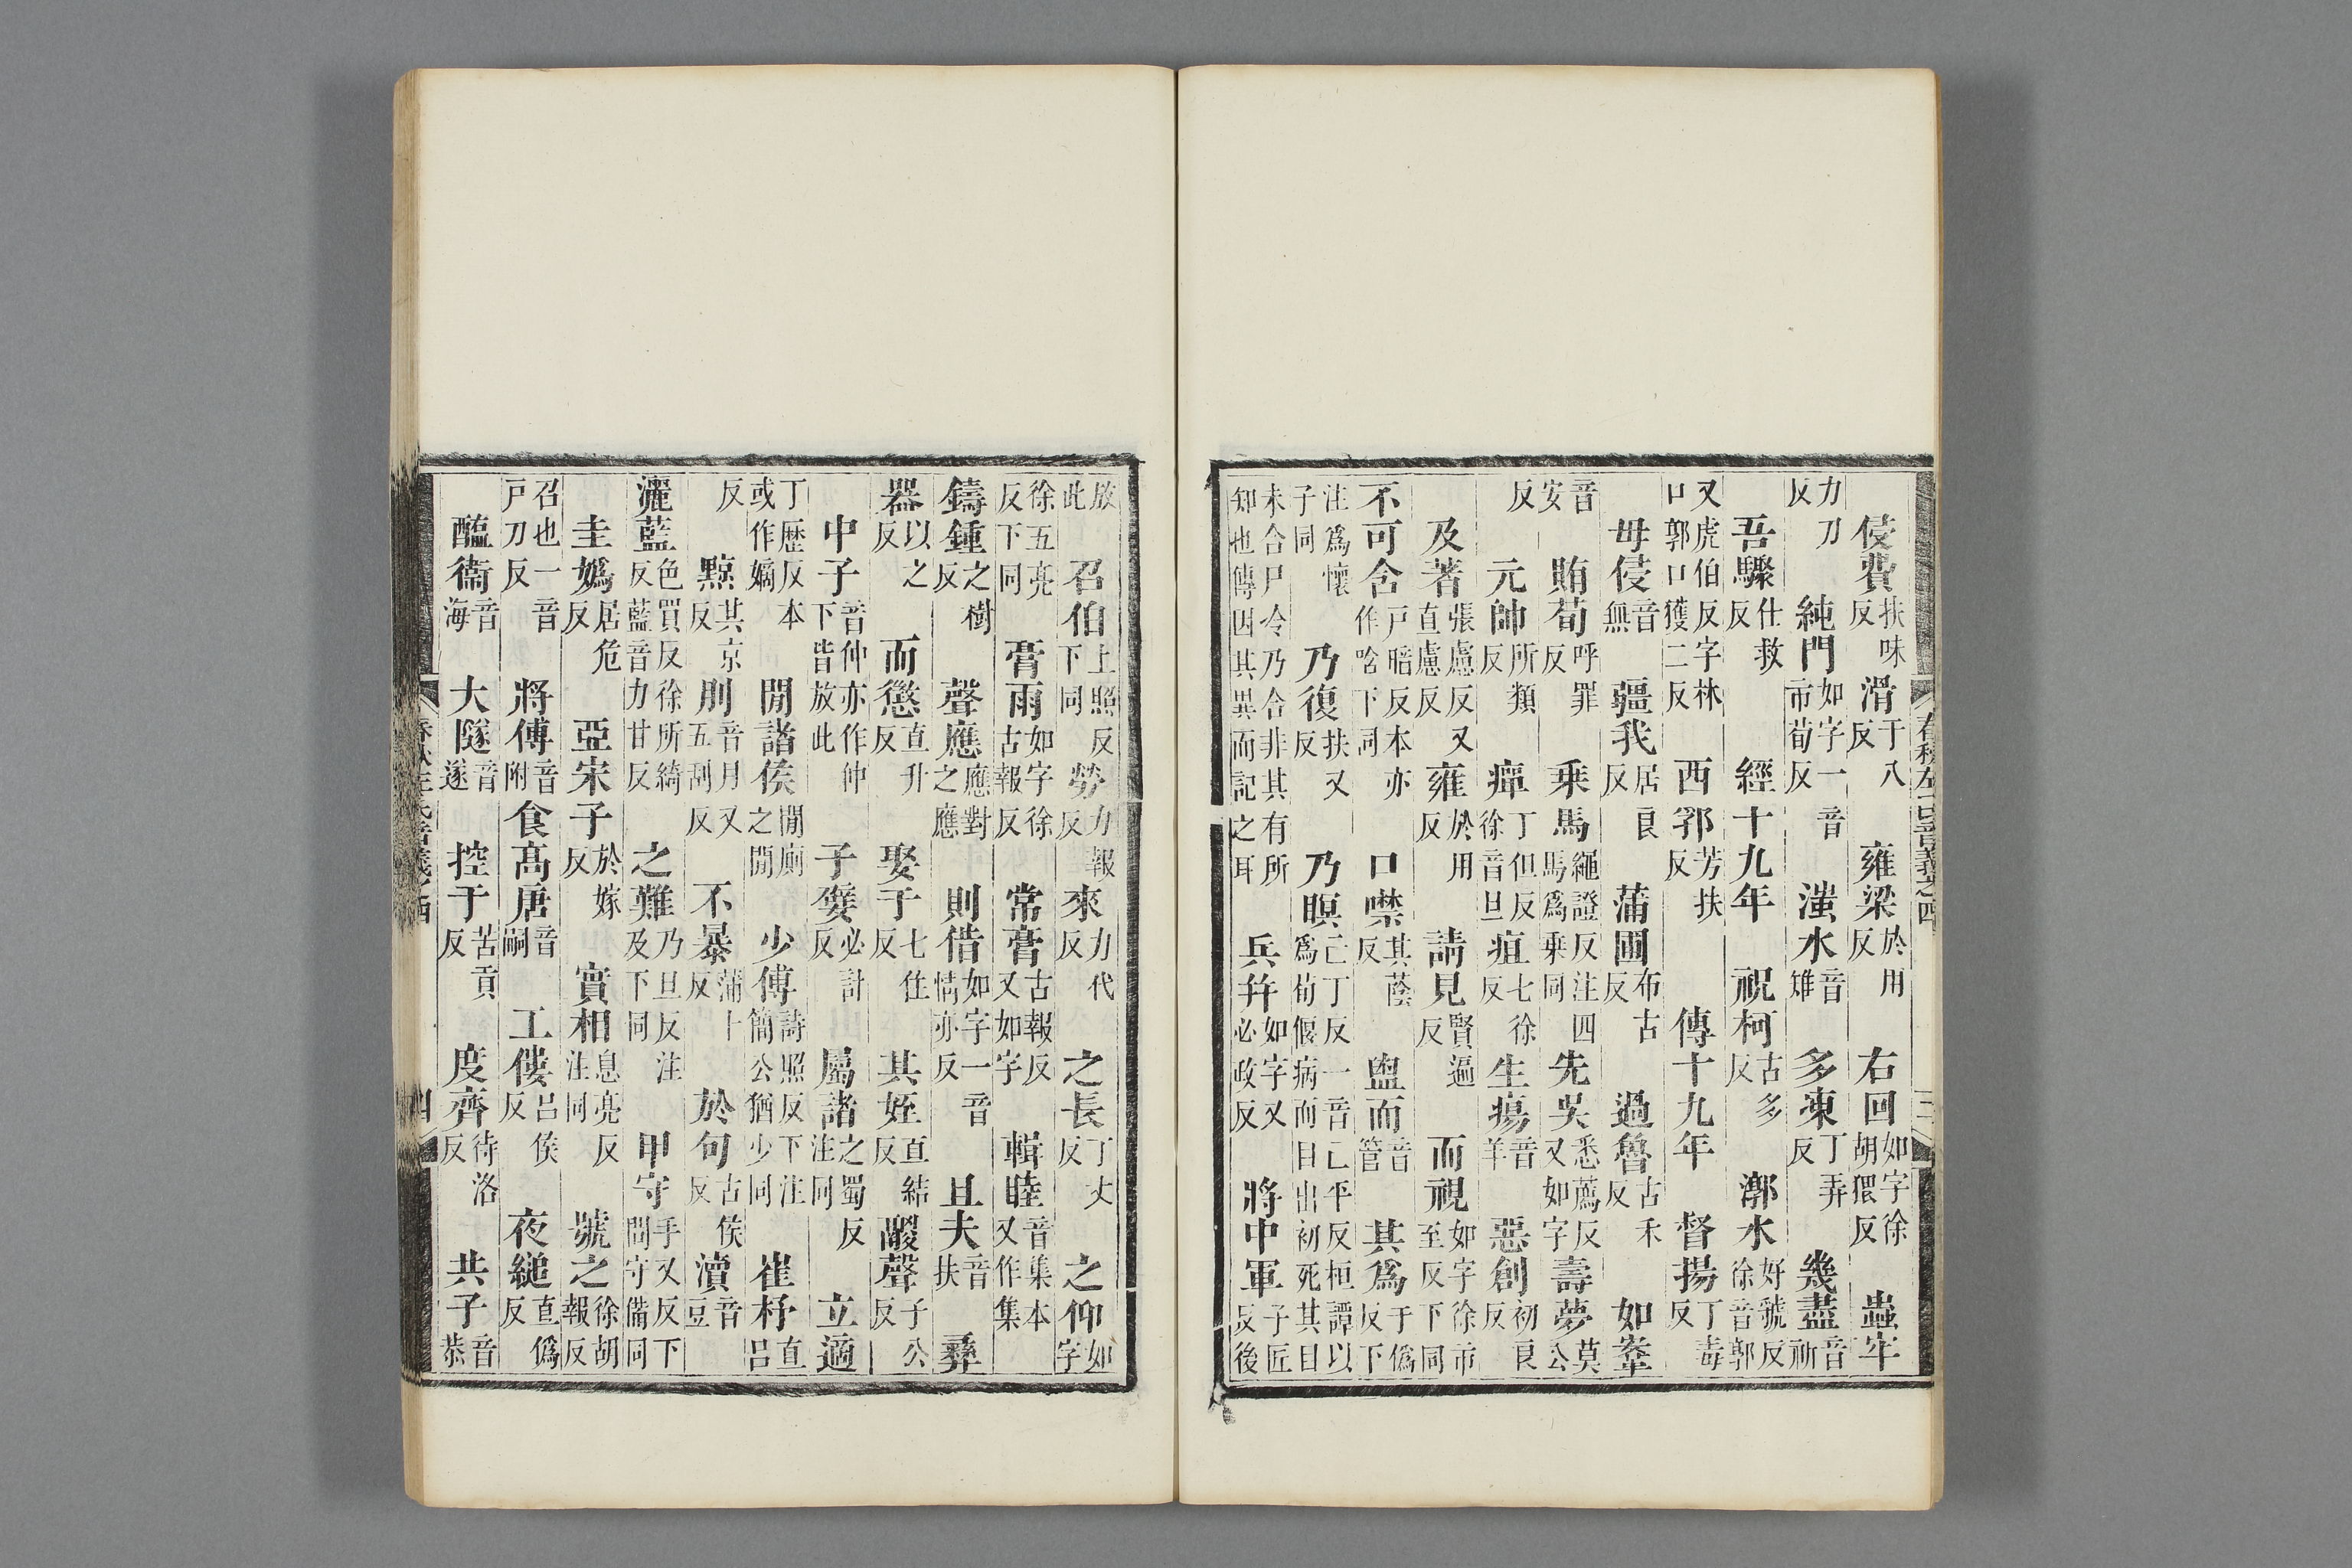 侵費扶味反 滑于八反 雍梁於用反 右回如字徐胡猥反 蟲牢
力刀反 純門如字一音市荀反 滍水音雉 多凍丁弄反 幾盡音祈
吾驟仕救反 經十九年 祝柯古多反 漷水好虢反徐音郭
又虎伯反字林口郭口獲二反 西郛芳扶反 傳十九年 督揚丁毒反
毋侵音無 疆我居良反 蒲圃布古反 過魯古禾反 如鞌
音安 賄荀呼罪反 乘馬繩證反注四馬爲乘同 先吳悉薦反又如字 壽夢莫公
反 元帥所類反 癉丁但反徐音旦 疽七徐反 生瘍音羊 惡創初良反
及著張慮反又直慮反 雍於用反 請見賢遍反 而視如字徐市至反下同
不可含戶暗反本亦作唅下同 口噤其蔭反 盥而音管 其爲于僞反下
注爲懷子同 乃復扶又反 乃瞑亡丁反一音亡平反桓譚以爲荀偃病而目出初死其目
未合尸冷乃合非其有所知也傳因其異而記之耳 兵幷如字又必政反 將中軍子匠反後
放此 召伯上照反下同 勞力報反 來力代反 之長丁丈反 之仰如字
徐五亮反下同 膏雨如字徐古報反 常膏古報反又如字 輯睦音集本又作集
鑄鍾之樹反 聲應應對之應 則借如字一音情亦反 且夫音扶 彝
器以之反 而懲直升反 娶于七住反 其姪直結反 鬷聲子公反
中子音仲亦作仲下皆放此 子嬖必計反 屬諸之蜀反注同 立適
丁歷反本或作嫡 閒諸侯閒廁之閒 少傅詩照反下注簡公猶少同 崔杼直呂
反 黥其京反 刖音月又五刮反 不暴蒲卜反 於句古侯反 瀆音豆
灑藍色買反徐所綺反藍音力甘反 之難乃旦反注及下同 甲守手又反下間守備同
圭嬀居危反 亞宋子於嫁反 實相息亮反注同 號之徐胡報反
召也一音戶刀反 將傅音附 食高唐音嗣 工僂呂侯反 夜縋直僞反
醢衞音海 大隧音遂 控于苦貢反 度齊待洛反 共子音恭
春秋左氏音義之四
春秋左氏音義之四 四